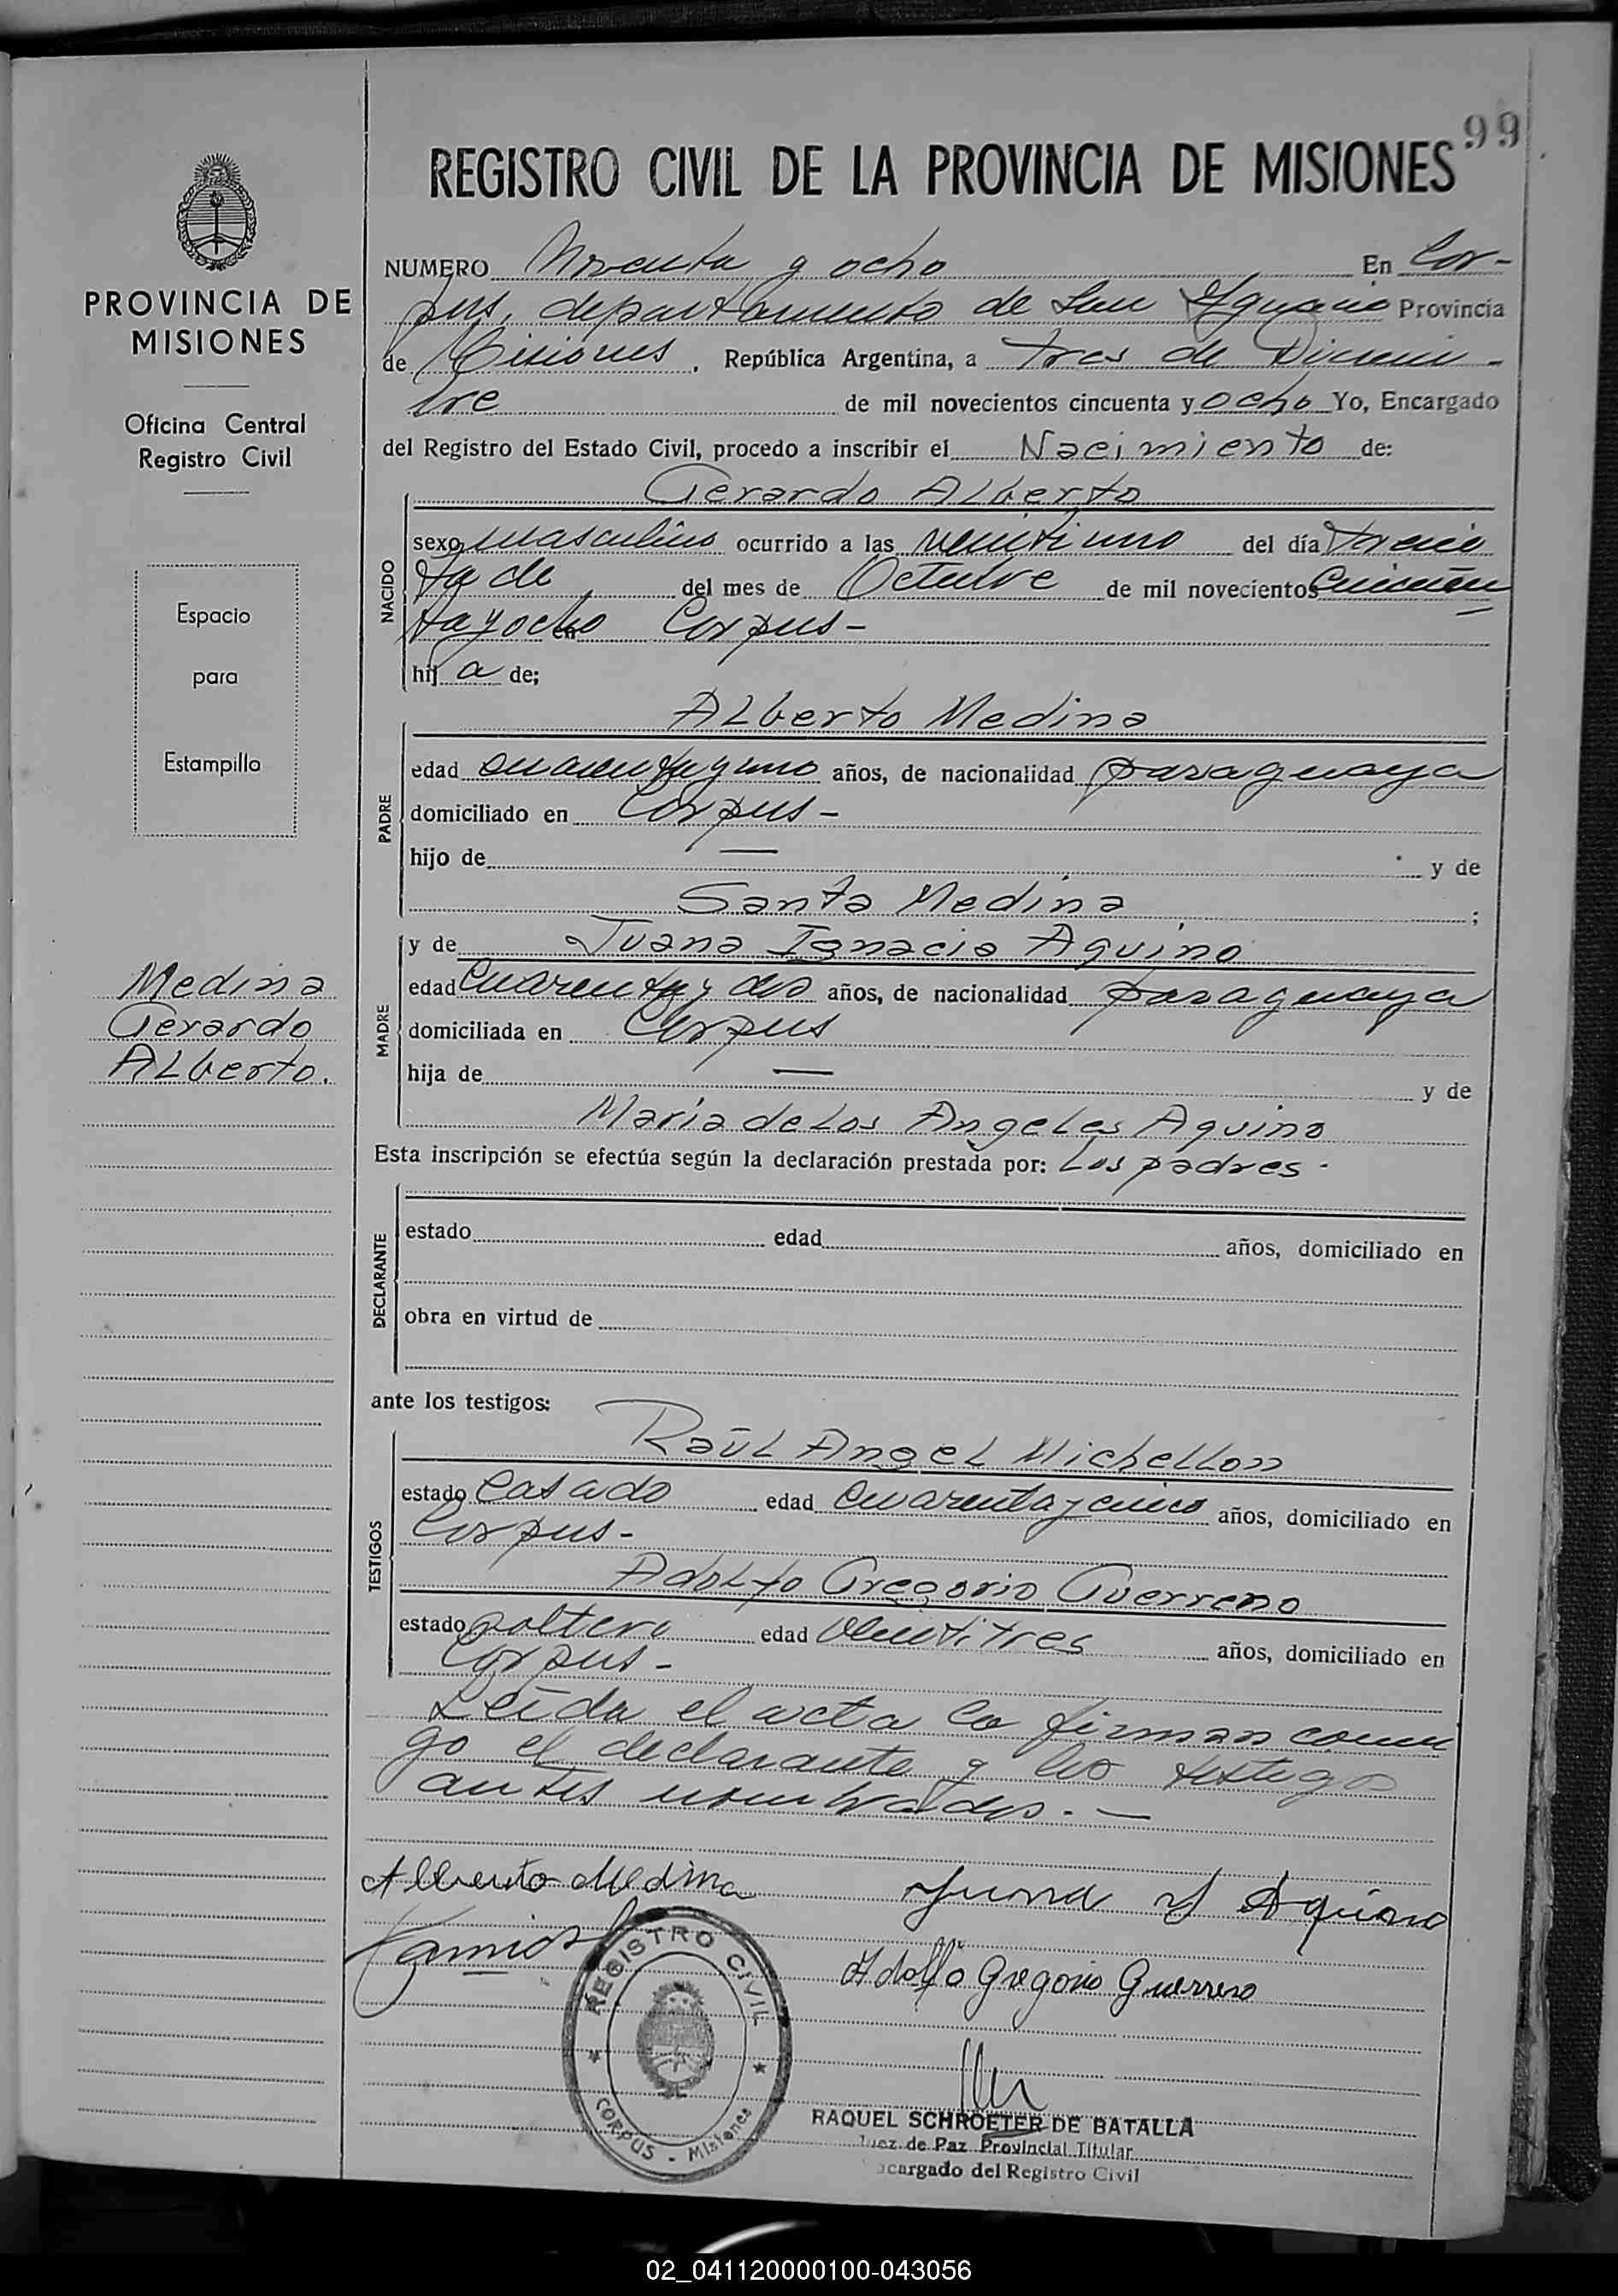 99
REGISTRO CIVIL DE LA PROVINCIA DE MISIONES
PROVINCIA DE
MISIONES
Oficina Central
Registro Civil
Espacio
para
Estampilla
Medina
Gerardo
Alberto.
NUMERO Noventa y ocho En Cor-
pus, departamento de San Ygnacio Provincia
de Misiones, República Argentina, a tres de Diciem-
bre de mil novecientos cincuenta y ocho Yo, Encargado
del Registro del Estado Civil, procedo a inscribir el Nacimiento de:
Gerardo Alberto
NACIDO
sexo masculino ocurrido a las veintiuno del día trein
ta de del mes de Octubre de mil novecientos cincuen
ta y ocho en Corpus-
hij a de;
Alberto Medina
PADRE
edad cuarenta y uno años, de nacionalidad paraguaya
domiciliado en Corpus-
hijo de — y de
Santa Medina ;
MADRE
y de Juana Ignacia Aquino
edad cuarenta y dos años, de nacionalidad paraguaya
domiciliada en Corpus
hija de — y de
María de Los Angeles Aquino
Esta inscripción se efectúa según la declaración prestada por: Los padres.
DECLARANTE
estado edad años, domiciliado en
obra en virtud de
ante los testigos:
TESTIGOS
Raúl Angel Michellon
estado Casado edad cuarenta y cinco años, domiciliado en
Corpus-
Adolfo Gregorio Guerreno
estado soltero edad veintitres años, domiciliado en
Corpus-
Leída el acta la firman conmi
go el declarante y los testigos
antes nombrados.—
Alberto Medina Juana Y Aquino
Adolfo Gregorio Guerrero
REGISTRO CIVIL
CORPUS - Misiones
RAQUEL SCHROETER DE BATALLA
Juez de Paz Provincial Titular
cargado del Registro Civil
02_041120000100-043056